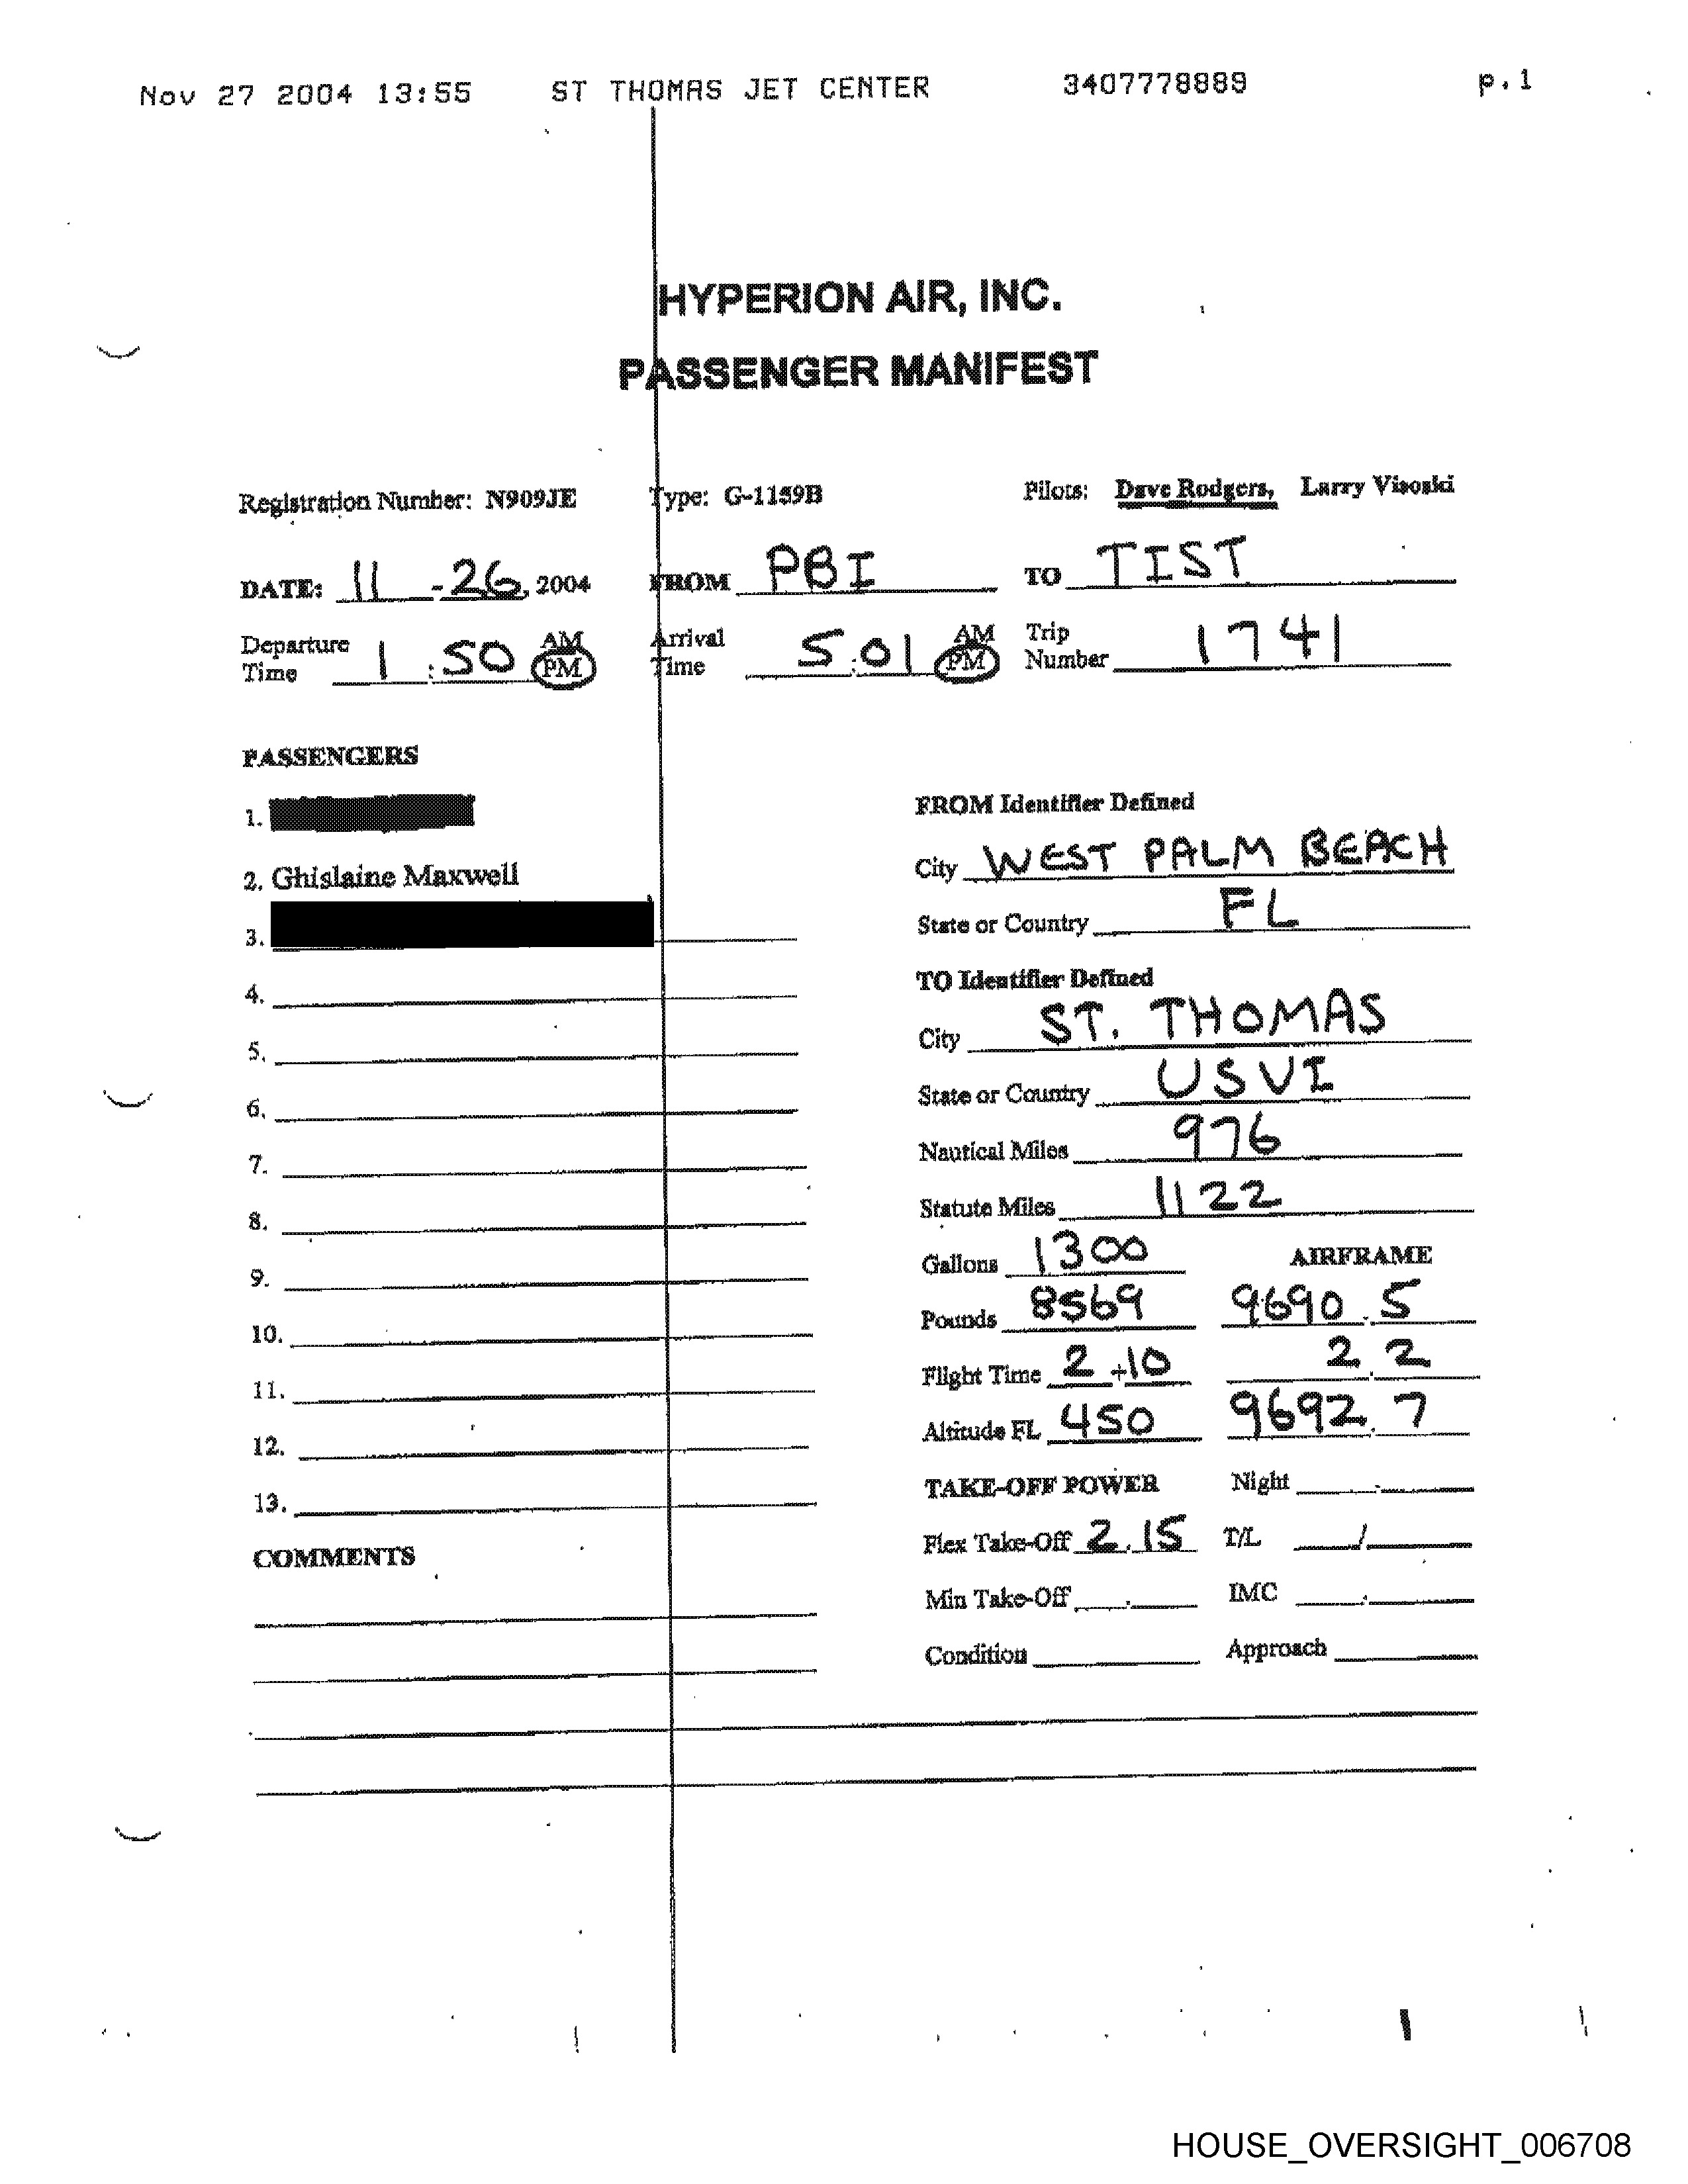 Nov 27 2004 13:55 ST THOMAS JET CENTER 3407778889 p.1
HYPERION AIR, INC.
PASSENGER MANIFEST
Registration Number: N909JE Type: G-1159B Pilots: Dave Rodgers, Larry Visoski
DATE: 11 - 26, 2004 FROM PBI TO TIST
Departure Time 1:50 AM PM Arrival Time 5:01 AM PM Trip Number 1741
PASSENGERS
1.
2. Ghislaine Maxwell
3.
4.
5.
6.
7.
8.
9.
10.
11.
12.
13.
COMMENTS
FROM Identifier Defined
City WEST PALM BEACH
State or Country FL
TO Identifier Defined
City ST. THOMAS
State or Country USVI
Nautical Miles 976
Statute Miles 1122
Gallons 1300 AIRFRAME
Pounds 8569 9690.5
Flight Time 2+10 2.2
Altitude FL 450 9692.7
TAKE-OFF POWER Night
Flex Take-Off 2.15 T/L /
Min Take-Off . IMC .
Condition Approach
HOUSE_OVERSIGHT_006708